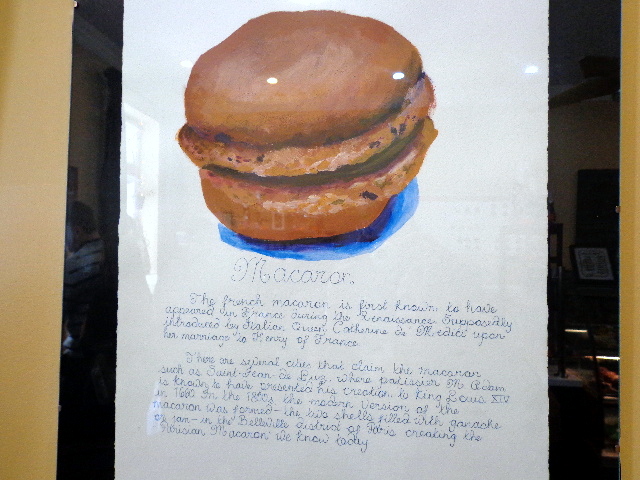 Macaron
The french macaron is first known to have
appeared in France during the Renaissance. Supposedly
introduced by Italian Queen Catherine de Medici upon
her marriage to Henry of France.
There are several cities that claim the macaron
such as Saint-Jean-de-Luz, where patissier M. Adam
is known to have presented his creation to King Louis XIV
in 1660. In the 1830s the modern version of the
macaron was formed - the two shells filled with ganache
or jam - in the Belleville district of Paris creating the
Parisian Macaron we know today